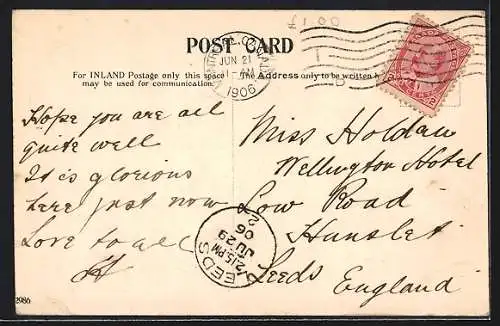 £1.00
POST CARD
JUN 21
1906
For INLAND Postage only this space
may be used for communication.
The Address only to be written
Hope you are all
quite well
It is glorious
here just now
Love to all
Miss Holdaw
Wellington Hotel
Low Road
Hunslet
Leeds
England
LEEDS
2 15 PM
JU 29
06
2986